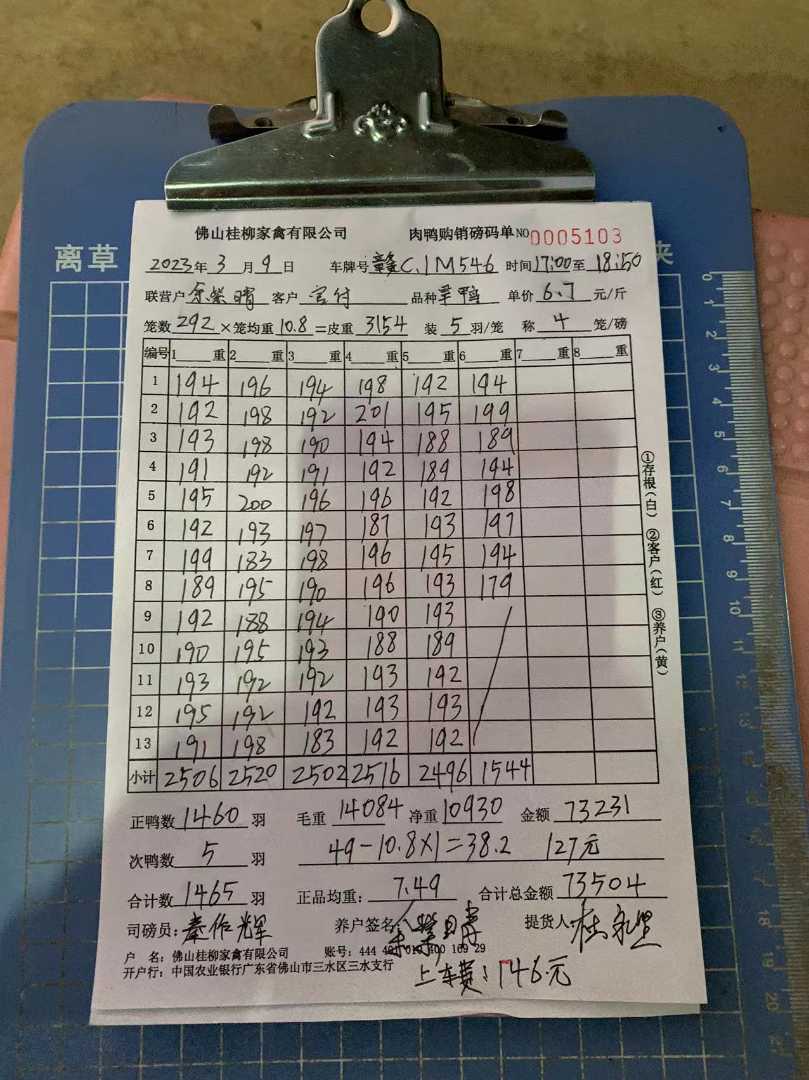 离草
夹
佛山桂柳家禽有限公司 肉鸭购销磅码单 NO 0005103
2023年 3 月 9 日 车牌号 赣C.1M546 时间 17:00 至 18:50
联营户 余紫晴 客户 官付 品种 羊鸭 单价 6.7 元/斤
笼数 292 × 笼均重 10.8 = 皮重 3154 装 5 羽/笼 称 4 笼/磅
编号 1 重 2 重 3 重 4 重 5 重 6 重 7 重 8 重
1 194 196 194 198 192 194
2 192 198 192 201 195 199
3 193 198 190 194 188 189
4 191 192 191 192 189 194
5 195 200 196 196 192 198
6 192 193 197 187 193 197
7 199 183 198 196 195 194
8 189 195 190 196 193 179
9 192 188 194 190 193
10 190 195 193 188 189
11 193 192 192 193 192
12 195 192 192 193 193
13 191 198 183 192 192
小计 2506 2520 2502 2516 2496 1544
正鸭数 1460 羽 毛重 14084 净重 10930 金额 73231
次鸭数 5 羽 49-10.8×1=38.2 127元
合计数 1465 羽 正品均重: 7.49 合计总金额 73504
司磅员: 秦作辉 养户签名: 余紫晴 提货人:
户 名: 佛山桂柳家禽有限公司 账号: 444
开户行: 中国农业银行广东省佛山市三水区三水支行
上车费: 146元
①存根(白) ②客户(红) ③养户(黄)
0 1 2 3 4 5 6 7 8 9 10 11 12 13 14 15 16 17 18 19 20